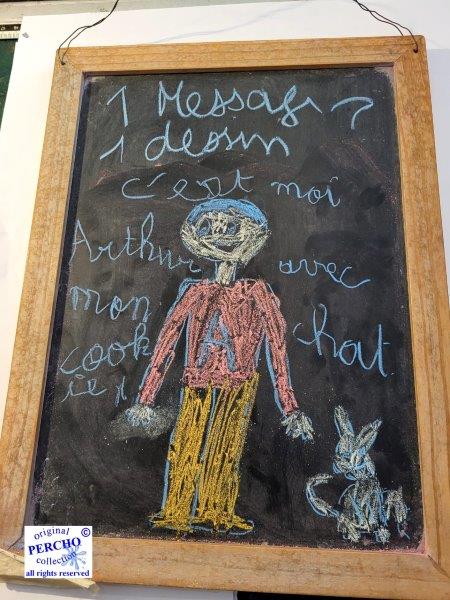 1 Message ?
1 dessin
c'est moi
Arthur avec
mon chat
cook
ie "
A
original ©
PERCHO
collection
all rights reserved